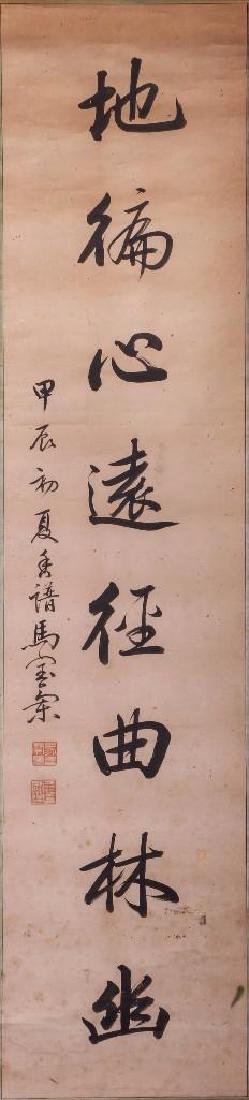 地徧心遠徑曲林幽
甲辰初夏譜馬